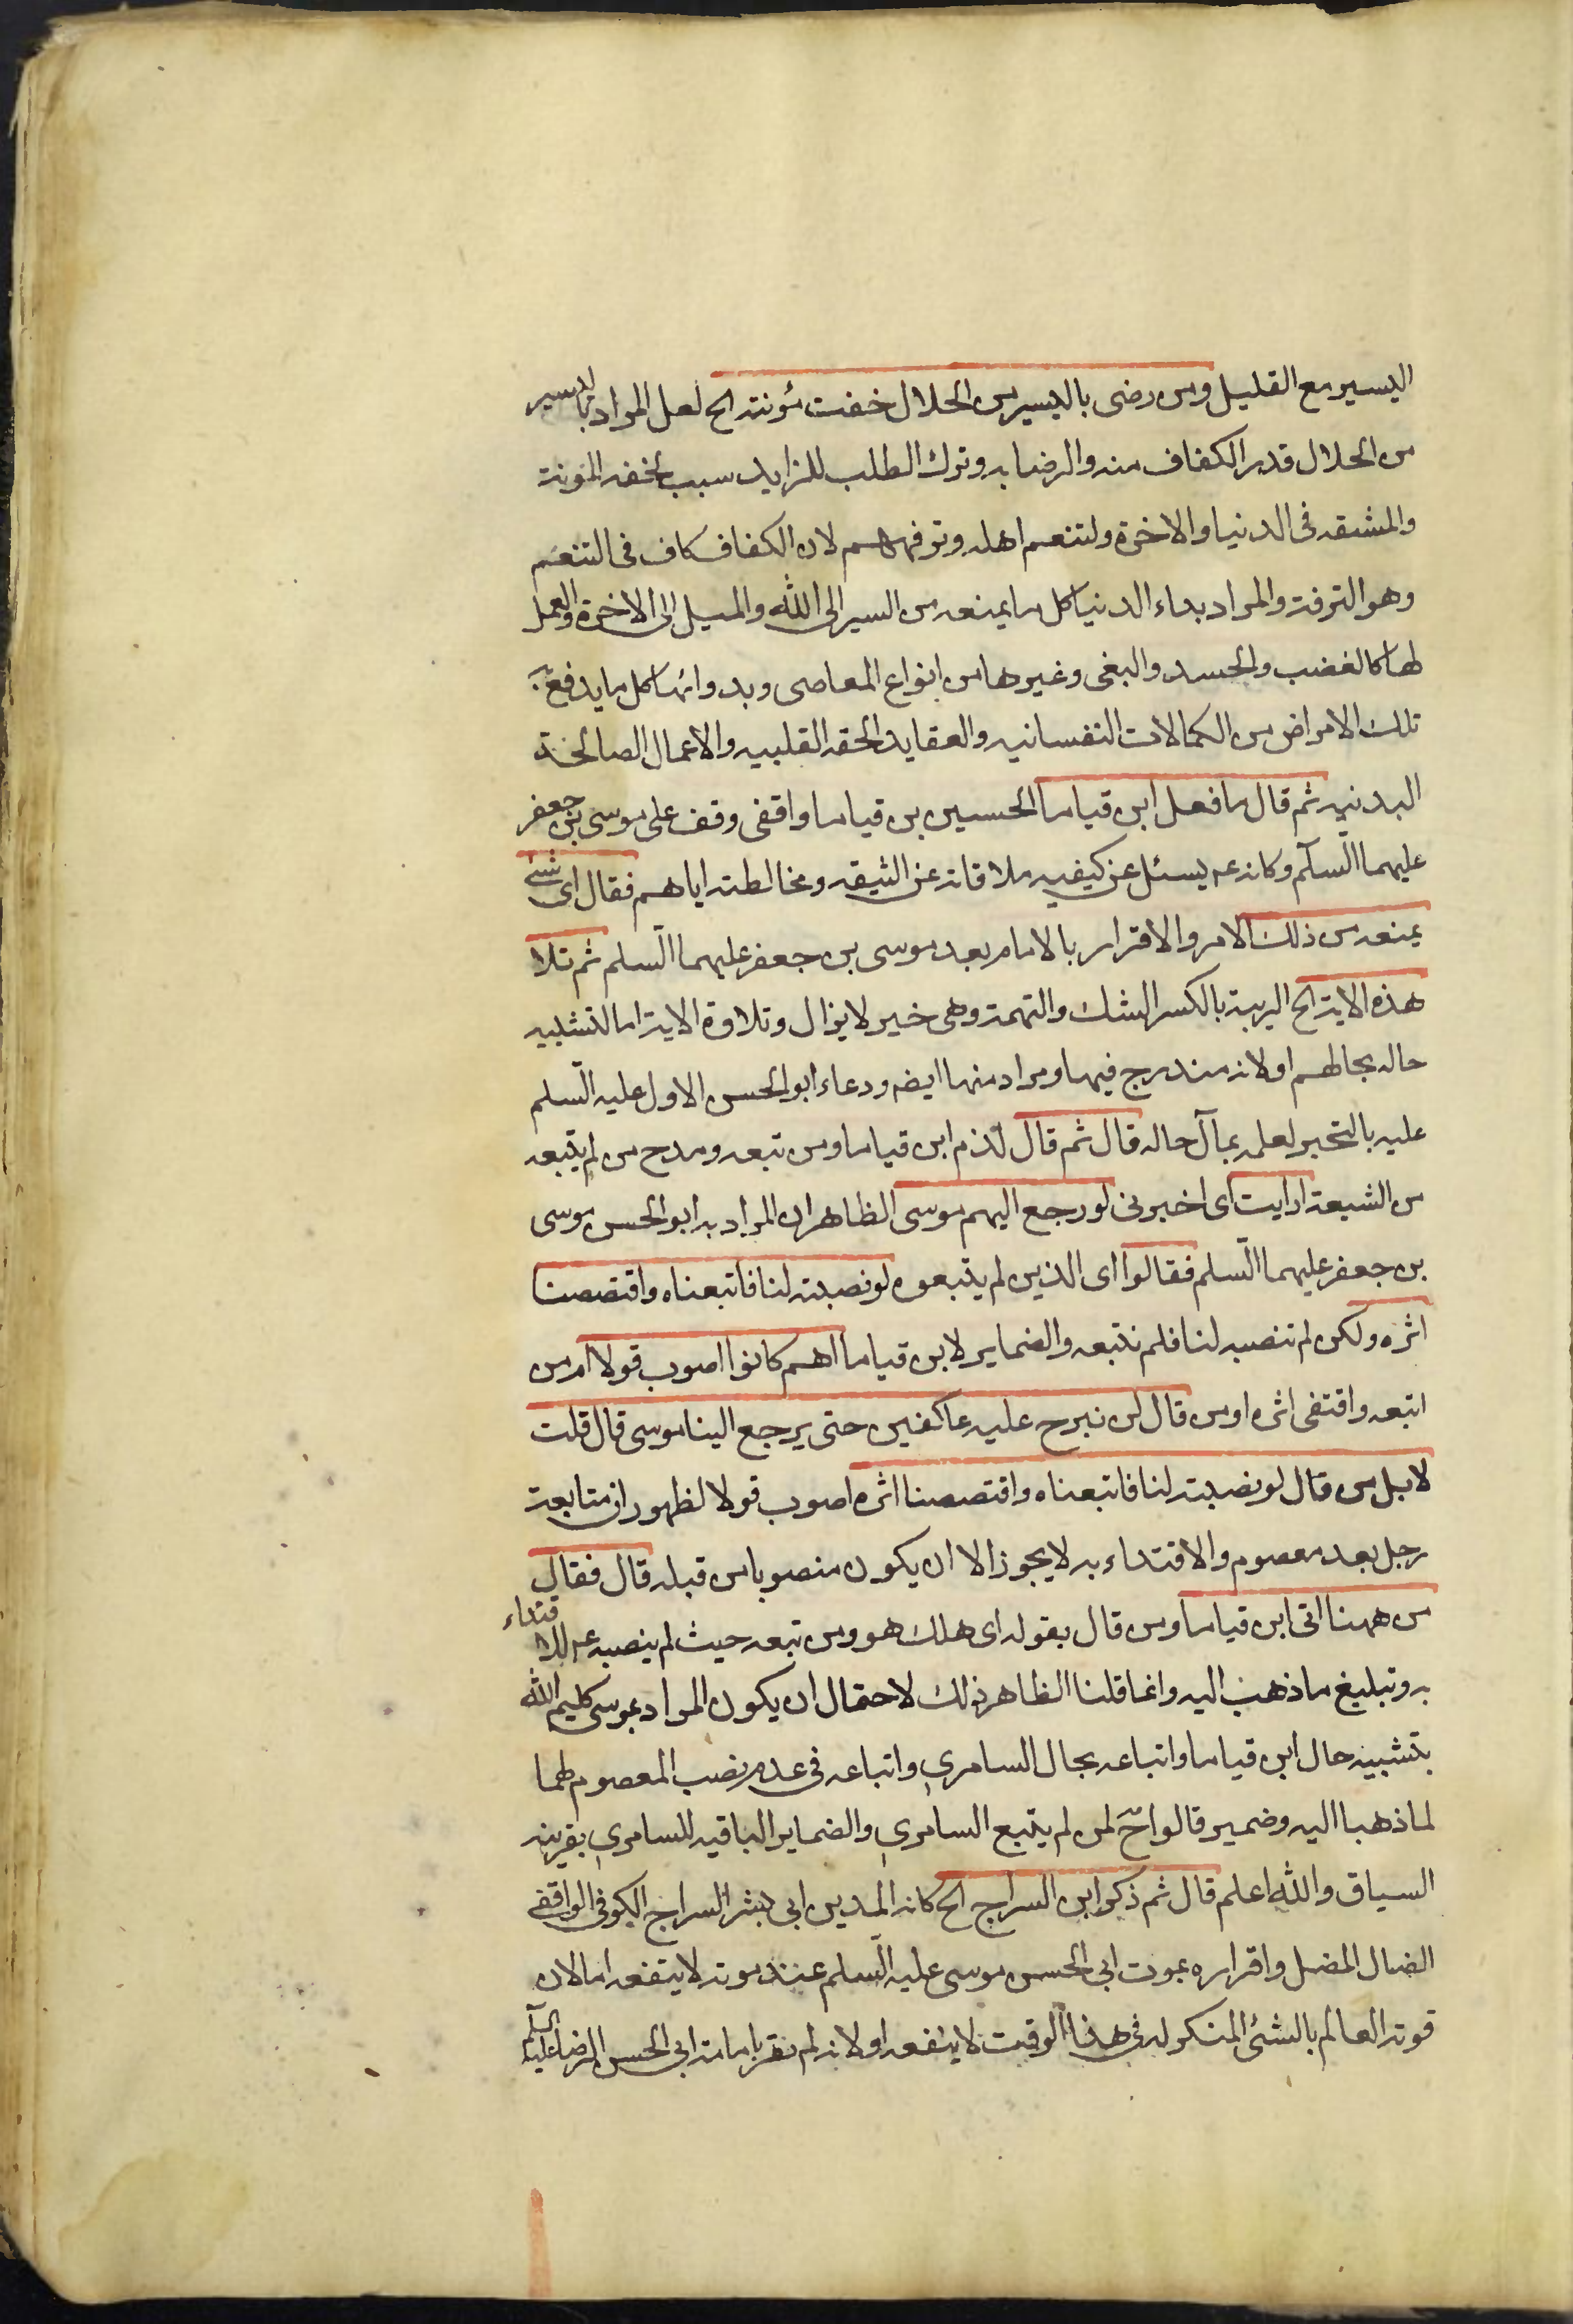 اليسير مع القليل ومن رضى باليسير من الحلال خفت مؤنته الخ لعل المراد باليسير
من الحلال قدر الكفاف منه والرضا به وترك الطلب للزايد سبب لخفه المؤنة
والمشقه فى الدنيا والاخرة ولتنعم اهله وترفههم لان الكفاف كاف فى التنعم
وهو الترفه والمراد بداء الدنيا كل ما يمنعه من السير الى الله والميل الى الاخرة والعمل
لها كالغضب والحسد والبغى وغيرها من انواع المعاصى وبدوائها كل ما يدفع به
تلك الامراض من الكمالات النفسانيه والعقايد الحقه القلبيه والاعمال الصالحة
البدنيه ثم قال ما فعل ابن قياما الحسين بن قياما واقفى وقف على موسى بن جعفر
عليهما السلم وكانه ع يسئل عن كيفيه ملاقاته عن الثيقه ومخالطته اياهم فقال اى شئ
يمنعه من ذلك الامر والاقرار بالامام بعد موسى بن جعفر عليهما السلم ثم تلا
هذه الاية الخ الريبة بالكسر الشك والتهمة وهى خبر لا يزال وتلاوة الاية اما لتشبيه
حاله بحالهم او لانه مندرج فيها ومراد منها ايضه ودعاء ابو الحسن الاول عليه السلم
عليه بالتحير لعلمه بمآل حاله قال ثم قال لذم ابن قياما ومن تبعه ومدح من لم يتبعه
من الشيعة ارايت اى اخبرنى لو رجع اليهم موسى الظاهر ان المراد به ابو الحسن موسى
بن جعفر عليهما السلم فقالوا اى الذين لم يتبعوه لو نصبته لنا فاتبعناه واقتصصنا
اثره ولكن لم تنصبه لنا فلم نتبعه والضماير لابن قياما اهم كانوا اصوب قولا ام من
اتبعه واقتفى اثره او من قال لن نبرح عليه عاكفين حتى يرجع الينا موسى قال قلت
لا بل من قال لو نصبته لنا فاتبعناه واقتصصنا اثره اصوب قولا لظهور ان متابعة
رجل بعد معصوم والاقتداء به لا يجوز الا ان يكون منصوبا من قبله قال فقال
من ههنا اتى ابن قياما ومن قال بقوله اى هلك هو ومن تبعه حيث لم ينصبه ع للاقتداء
به وتبليغ ما ذهب اليه وانما قلنا الظاهر ذلك لاحتمال ان يكون المراد بموسى كليم الله
بتشبيه حال ابن قياما واتباعه بحال السامرى واتباعه فى عدم نصب المعصوم لهما
لما ذهبا اليه وضمير قالوا ح لمن لم يتبع السامرى والضماير الباقيه للسامرى بقرينه
السياق والله اعلم قال ثم ذكر ابن السراج الخ كانه احمد بن ابى بشر السراج الكوفى الواقفى
الضال المضل واقراره بموت ابى الحسن موسى عليه السلم عند موته لا ينفعه اما لان
توبة العالم بالشئ المنكر له فى هذا الوقت لا ينفعه او لانه لم يقر بامامة ابى الحسن الرضا عليه السلم